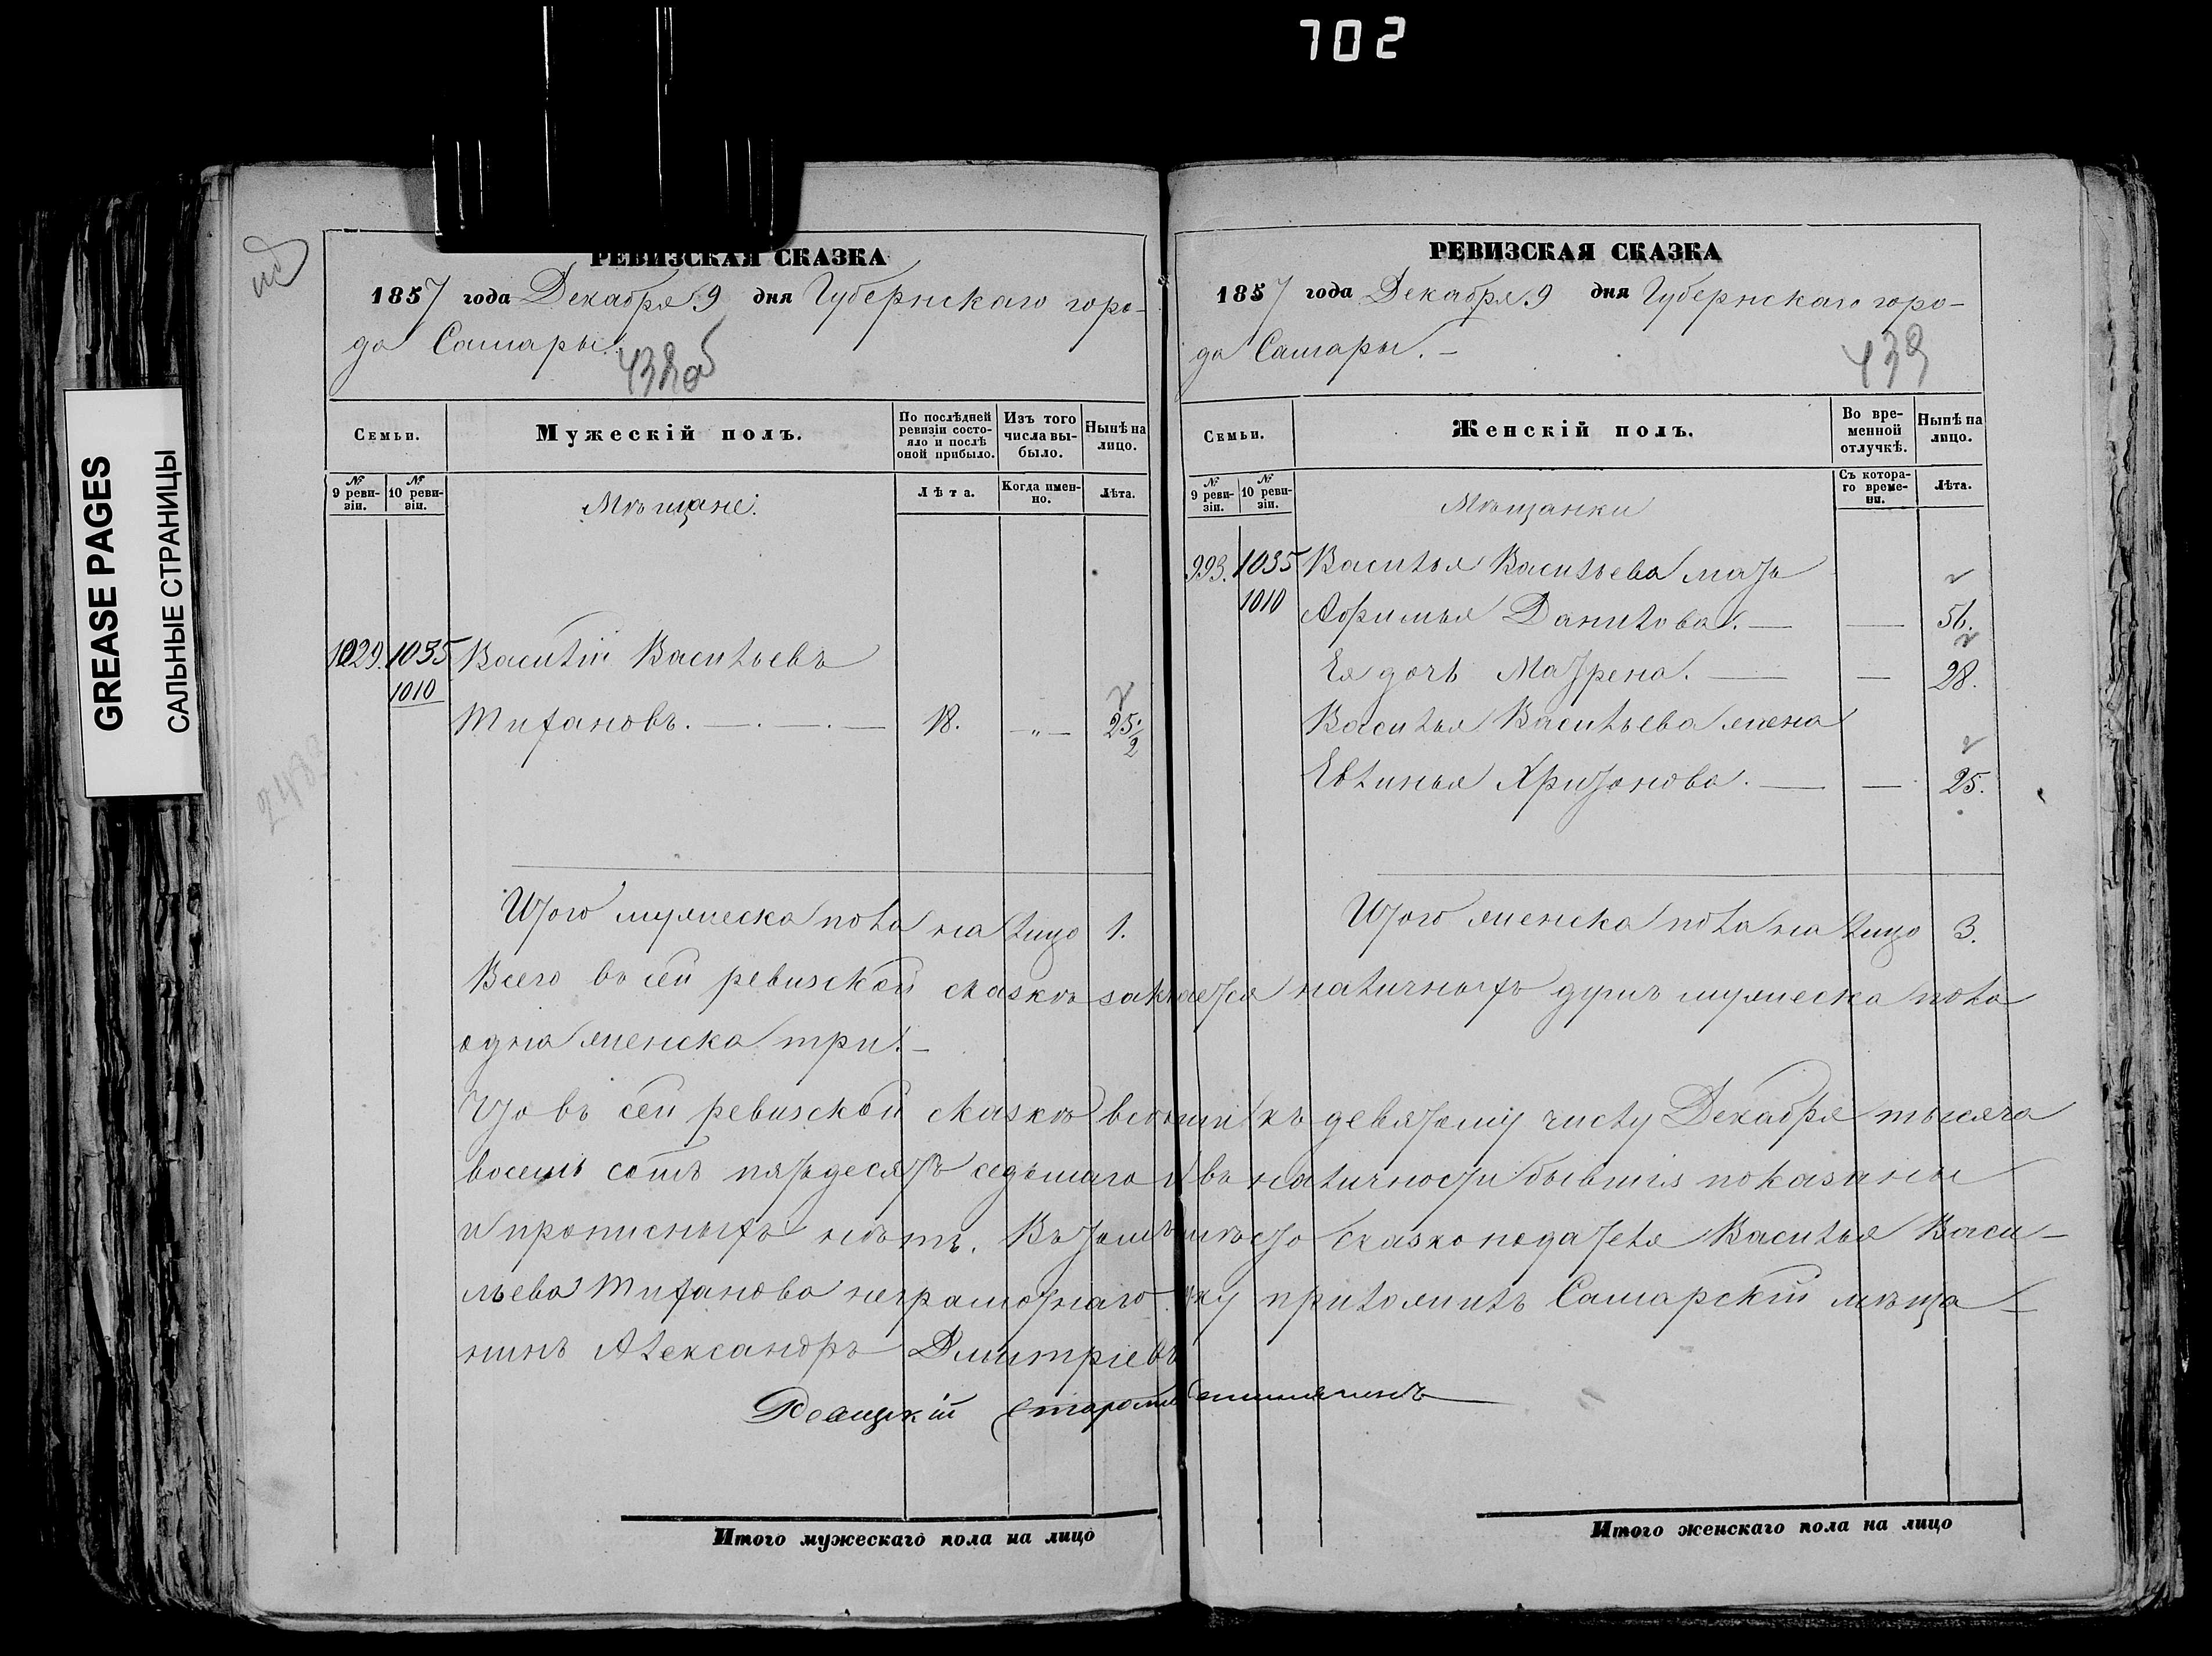 702
GREASE PAGES
САЛЬНЫЕ СТРАНИЦЫ
РЕВИЗСКАЯ СКАЗКА
1857 года Декабря 9 дня Губернскаго горо-
да Самары.
438об
Семьи.
Мужескій полъ.
По послѣдней ревизіи состояло и послѣ оной прибыло.
Изъ того числа выбыло.
Нынѣ на лицо.
№ 9 ревизіи.
№ 10 ревизіи.
Мѣщане.
Лѣта.
Когда именно.
Лѣта.
1029. 1035 Василій Васильевъ
1010
Тихановъ. — . — . — 18. — „ — 25.
2
Итого мужеска пола на лицо 1.
РЕВИЗСКАЯ СКАЗКА
1857 года Декабря 9 дня Губернскаго горо-
да Самары. –
439
Семьи.
Женскій полъ.
Во временной отлучкѣ.
Нынѣ на лицо.
№ 9 ревизіи.
№ 10 ревизіи.
Мѣщанки
Съ котораго времени.
Лѣта.
993. 1035 Василья Васильева мать
1010 Афимья Данилова. — — 56.
Ея дочь Матрена. — — 28.
Василья Васильева жена
Евлинья Харитонова. — — 25.
Итого женска пола на лицо 3.
Всего въ сей ревизской сказкѣ наличныхъ душъ мужеска пола
одна женска три. –
Что въ сей ревизской сказкѣ всѣ къ девятому числу Декабря тысяча
восемь сотъ пятьдесятъ седьмаго въ наличности бывшія показаны
и прописныхъ нѣтъ. Въ томъ вмѣсто сказкоподателя Василья Васи-
льева Тиханова неграмотнаго руку приложилъ Самарскій мѣща-
нинъ Александръ Дмитріевъ
Итого мужескаго пола на лицо
Итого женскаго пола на лицо